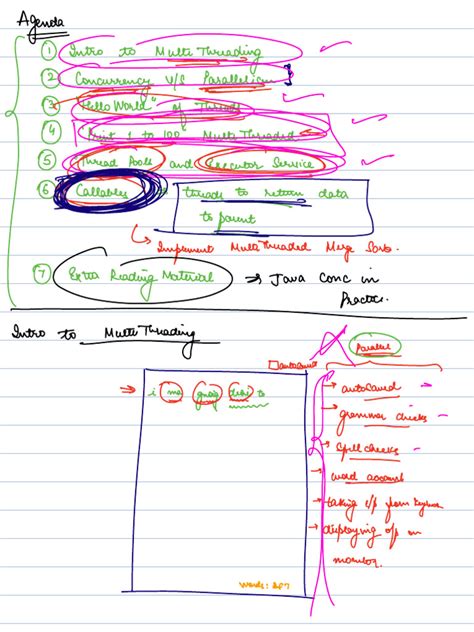 Agenda
① Intro to Multi Threading
② Concurrency v/s Parallelism
③ "Hello World" of Threads
④ Print 1 to 100 Multi Threaded
⑤ Thread Pools and Executor Service
⑥ Callables threads to return data
to parent
↳ Implement MultiThreaded Merge Sort.
⑦ Extra Reading Material ⇒ Java Conc in
Practice.
Intro to Multi Threading
Parallel
autosaved
→ i to
→ autosaved
→ grammar checks
→ spell checks
→ word account
→ taking i/p from
→ displaying o/p on
monitor.
Words: 287